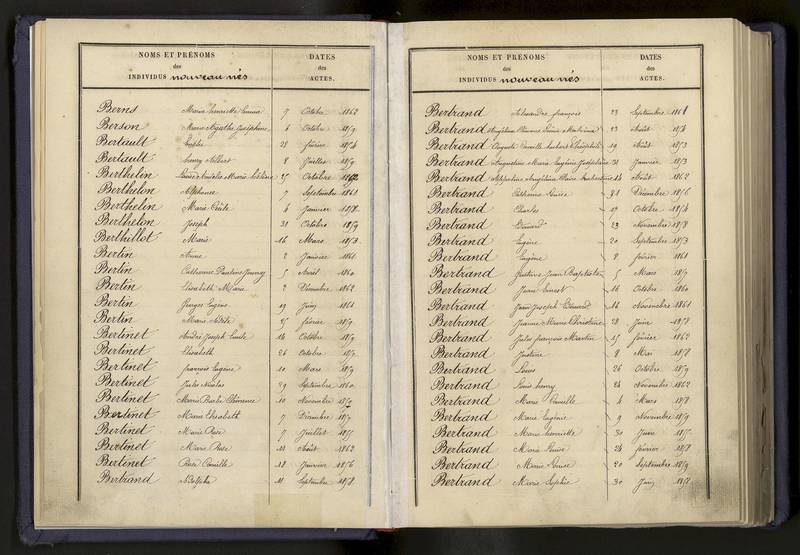 NOMS ET PRÉNOMS
des
INDIVIDUS nouveau nés
DATES
des
ACTES.
Berns Marie henriette Louise 7 Octobre 1862
Berson Marie Agathe Joséphine 6 Octobre 1859
Bertault 28 février 1854
Bertault henry Albert 8 Juillet 1859
Berthelin Louise Amélie Marie 25 Octobre 1862
Berthelon Alphonse 7 Septembre 1861
Berthelin Marie Cécile 4 Janvier 1858
Berthelon Joseph 31 Octobre 1859
Berthillot Marie 16 Mars 1853
Bertin Anne 2 Janvier 1861
Bertin Catherine Pauline 5 Avril 1860
Bertin Elisabeth Marie 2 Décembre 1862
Bertin Eugène 19 Juin 1861
Bertin Marie 25 février 1859
Bertinet André Joseph Emile 14 Octobre 1859
Bertinet Elisabeth 26 Octobre
Bertinet françois Eugène 10 Mars 1859
Bertinet Jules Nicolas 29 Septembre 1860
Bertinet Marie Barbe Clémence 10 Novembre
Bertinet Marie Elisabeth 7 Décembre
Bertinet Marie Rose 7 Juillet
Bertinet Marie Rose 11 Août 1862
Bertinet Rose Camille 12 Janvier 1856
Bertrand Adolphe 11 Septembre 1858
NOMS ET PRÉNOMS
des
INDIVIDUS nouveau nés
DATES
des
ACTES.
Bertrand Alexandre françois 23 Septembre 1861
Bertrand 23 Août 1854
Bertrand Auguste Camille 19 Août 1853
Bertrand Augustine Marie Eugénie Joséphine 31 Janvier 1853
Bertrand 14 Août 1862
Bertrand Catherine Louise 31 Décembre 1856
Bertrand Charles 19 Octobre 1854
Bertrand Edouard 23 Novembre 1858
Bertrand Eugène 20 Septembre 1853
Bertrand Eugène 2 février 1861
Bertrand Gustave Jean Baptiste 5 Mars
Bertrand Jean Ernest 16 Octobre 1860
Bertrand Jean Joseph Edouard 16 Novembre 1861
Bertrand Jeanne Marie Christine 28 Juin 1858
Bertrand Jules françois Martin 15 février 1862
Bertrand Justine 8 Mai 1858
Bertrand Louis 26 Octobre 1859
Bertrand Louis henry 24 Novembre 1862
Bertrand Marie Camille 4 Mars 1858
Bertrand Marie Eugénie 9 Novembre 1859
Bertrand Marie henriette 30 Juin
Bertrand Marie Louise 24 février 1858
Bertrand Marie Louise 20 Septembre 1859
Bertrand Marie Sophie 30 Juin 1858